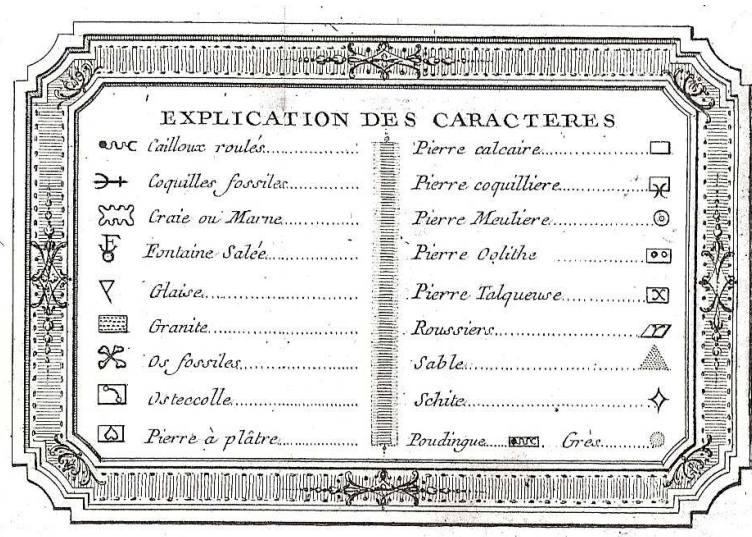 EXPLICATION DES CARACTERES
Cailloux roulés
Coquilles fossiles
Craie ou Marne
Fontaine Salée
Glaise
Granite
Os fossiles
Osteccolle
Pierre à plâtre
Pierre calcaire
Pierre coquilliere
Pierre Meuliere
Pierre Oolithe
Pierre Talqueuse
Roussiers
Sable
Schite
Poudingue Grès